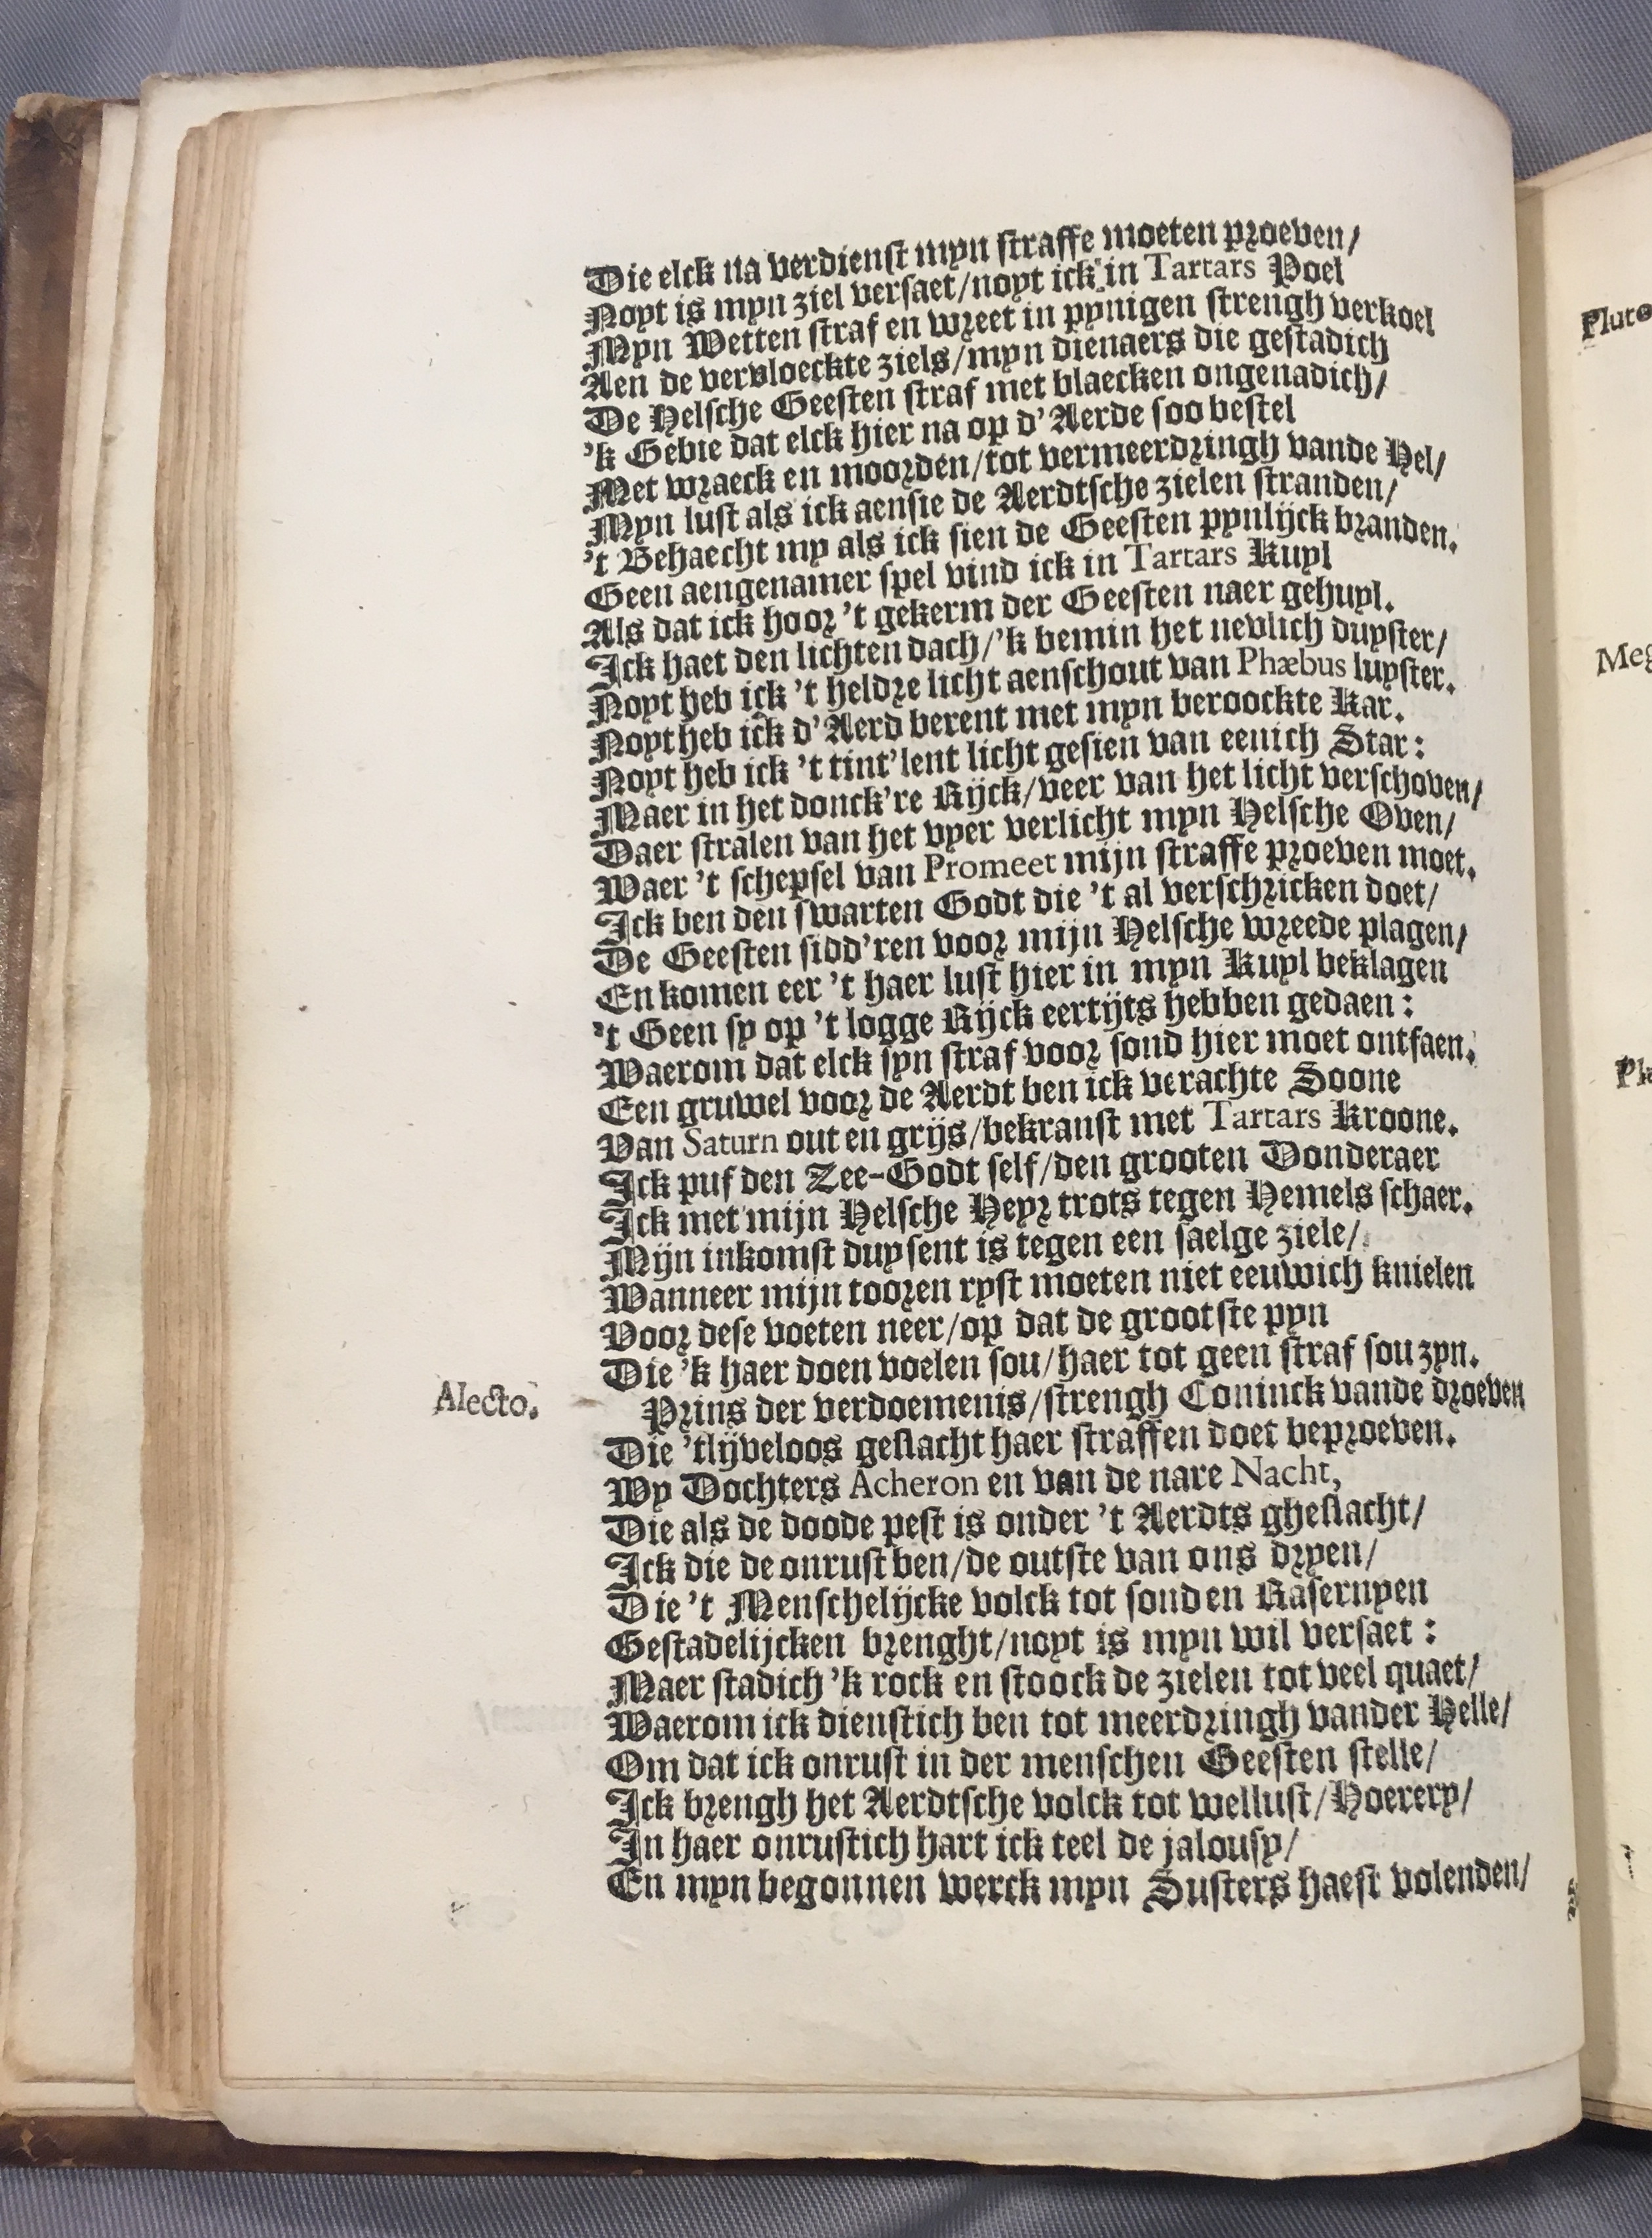 Die elck na verdienst myn straffe moeten proeven/
Noyt is myn ziel versaet/noyt ick in Tartars Poel
Myn Wetten straf en wreet in pynigen strengh verkoel
Aen de vervloeckte ziels/myn dienaers die gestadich
De Helsche Geesten straf met blaecken ongenadich/
'k Gebie dat elck hier na op d'Aerde soo bestel
Met wraeck en moorden/tot vermeerdringh vande Hel/
Myn lust als ick aensie de Aerdtsche zielen stranden/
't Behaecht my als ick sien de Geesten pynlijck branden.
Geen aengenamer spel vind ick in Tartars Kuyl
Als dat ick hoor 't gekerm der Geesten naer gehuyl.
Ick haet den lichten dach/'k bemin het nevlich duyster/
Noyt heb ick 't heldre licht aenschout van Phæbus luyster.
Noyt heb ick d'Aerd berent met myn beroockte Kar.
Noyt heb ick 't tint'lent licht gesien van eenich Star:
Maer in het donck're Rijck/veer van het licht verschoven/
Daer stralen van het vyer verlicht myn Helsche Oven/
Waer 't schepsel van Promeet mijn straffe proeven moet.
Ick ben den swarten Godt die 't al verschricken doet/
De Geesten sidd'ren voor mijn Helsche wreede plagen/
En komen eer 't haer lust hier in myn Kuyl beklagen
't Geen sy op 't logge Rijck eertijts hebben gedaen:
Waerom dat elck syn straf voor sond hier moet ontfaen.
Een gruwel voor de Aerdt ben ick verachte Soone
Van Saturn out en grijs/bekranst met Tartars Kroone.
Ick puf den Zee-Godt self/den grooten Donderaer
Ick met mijn Helsche Heyr trots tegen Hemels schaer.
Mijn inkomst duysent is tegen een saelge ziele/
Wanneer mijn tooren ryst moeten niet eeuwich knielen
Voor dese voeten neer/op dat de grootste pyn
Die 'k haer doen voelen sou/haer tot geen straf sou zyn.
Alecto. Prins der verdoemenis/strengh Coninck vande droeven
Die 'tlijveloos geslacht haer straffen doet beproeven.
Wy Dochters Acheron en van de nare Nacht,
Die als de doode pest is onder 't Aerdts gheslacht/
Ick die de onrust ben/de outste van ons dryen/
Die 't Menschelijcke volck tot sonden Rasernyen
Gestadelijcken brenght/noyt is myn wil versaet:
Maer stadich 'k rock en stoock de zielen tot veel quaet/
Waerom ick dienstich ben tot meerdringh vander Helle/
Om dat ick onrust in der menschen Geesten stelle/
Ick brengh het Aerdtsche volck tot wellust/Hoerery/
In haer onrustich hart ick teel de jalousy/
En myn begonnen werck myn Susters haest volenden/
Pluto
Meg
Pl